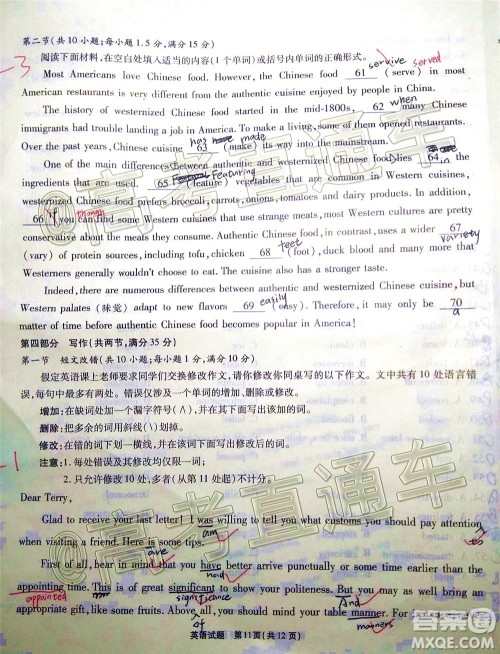 第二节(共10小题;每小题1.5分,满分15分)
阅读下面材料,在空白处填入适当的内容(1个单词)或括号内单词的正确形式。
-3
survive served
Most Americans love Chinese food. However, the Chinese food 61 (serve) in most
American restaurants is very different from the authentic cuisine enjoyed by people in China.
The history of westernized Chinese food started in the mid-1800s, 62 when many Chinese
immigrants had trouble landing a job in America. To make a living, some of them opened restaurants.
has made
Over the past years, Chinese cuisine 63 (make) its way into the mainstream.
One of the main differences between authentic and westernized Chinese food lies 64 in the
Featuring
ingredients that are used. 65 (feature) vegetables that are common in Western cuisines,
westernized Chinese food prefers broccoli, carrots, onions, tomatoes and dairy products. In addition,
66 If though you can find some Western cuisines that use strange meats, most Western cultures are pretty
conservative about the meats they consume. Authentic Chinese food, in contrast, uses a wider 67
variety
feet
(vary) of protein sources, including tofu, chicken 68 (foot), duck blood and many more that
Westerners generally wouldn't choose to eat. The cuisine also has a stronger taste.
Indeed, there are numerous differences between authentic and westernized Chinese cuisine, but
easily
Western palates (味觉) adapt to new flavors 69 (easy). Therefore, it may only be 70
a
matter of time before authentic Chinese food becomes popular in America!
第四部分 写作(共两节,满分35分)
第一节 短文改错(共10小题;每小题1分,满分10分)
假定英语课上老师要求同学们交换修改作文,请你修改你同桌写的以下作文。文中共有10处语言错
误,每句中最多有两处。每处错误仅涉及一个单词的增加、删除或修改。
增加:在缺词处加一个漏字符号(∧),并在其下面写出该加的词。
删除:把多余的词用斜线(\)划掉。
修改:在错的词下划一横线,并在该词下面写出修改后的词。
-1
注意:1. 每处错误及其修改均仅限一词;
2. 只允许修改10处,多者(从第11处起)不计分。
Dear Terry,
Glad to receive your last letter! I was writing to tell you what customs you should pay attention
am
when visiting a friend. Here is some tips.
are
First of all, bear in mind that you have better arrive punctually or several minutes earlier than the
had
appointing time. This is of great significant to show your politeness. But as well as bring an
appointed significance
appropriate gift, like some fruits. Above all, you should
And
of
manners
英语试题 第11页(共12页)
高考直通车
高考直通车
答案圈
MXQE.COM